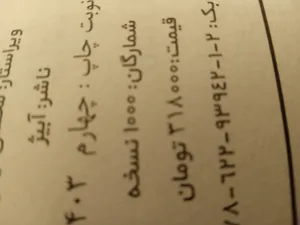 ویراستار:
ناشر: آییژ
نوبت چاپ: چهارم ۴۰۳
شمارگان: ۱۰۰۰ نسخه
قیمت: ۳۱۸۰۰۰ تومان
بک: ۲-۱-۹۳۹۴۲-۶۲۲-۷۸